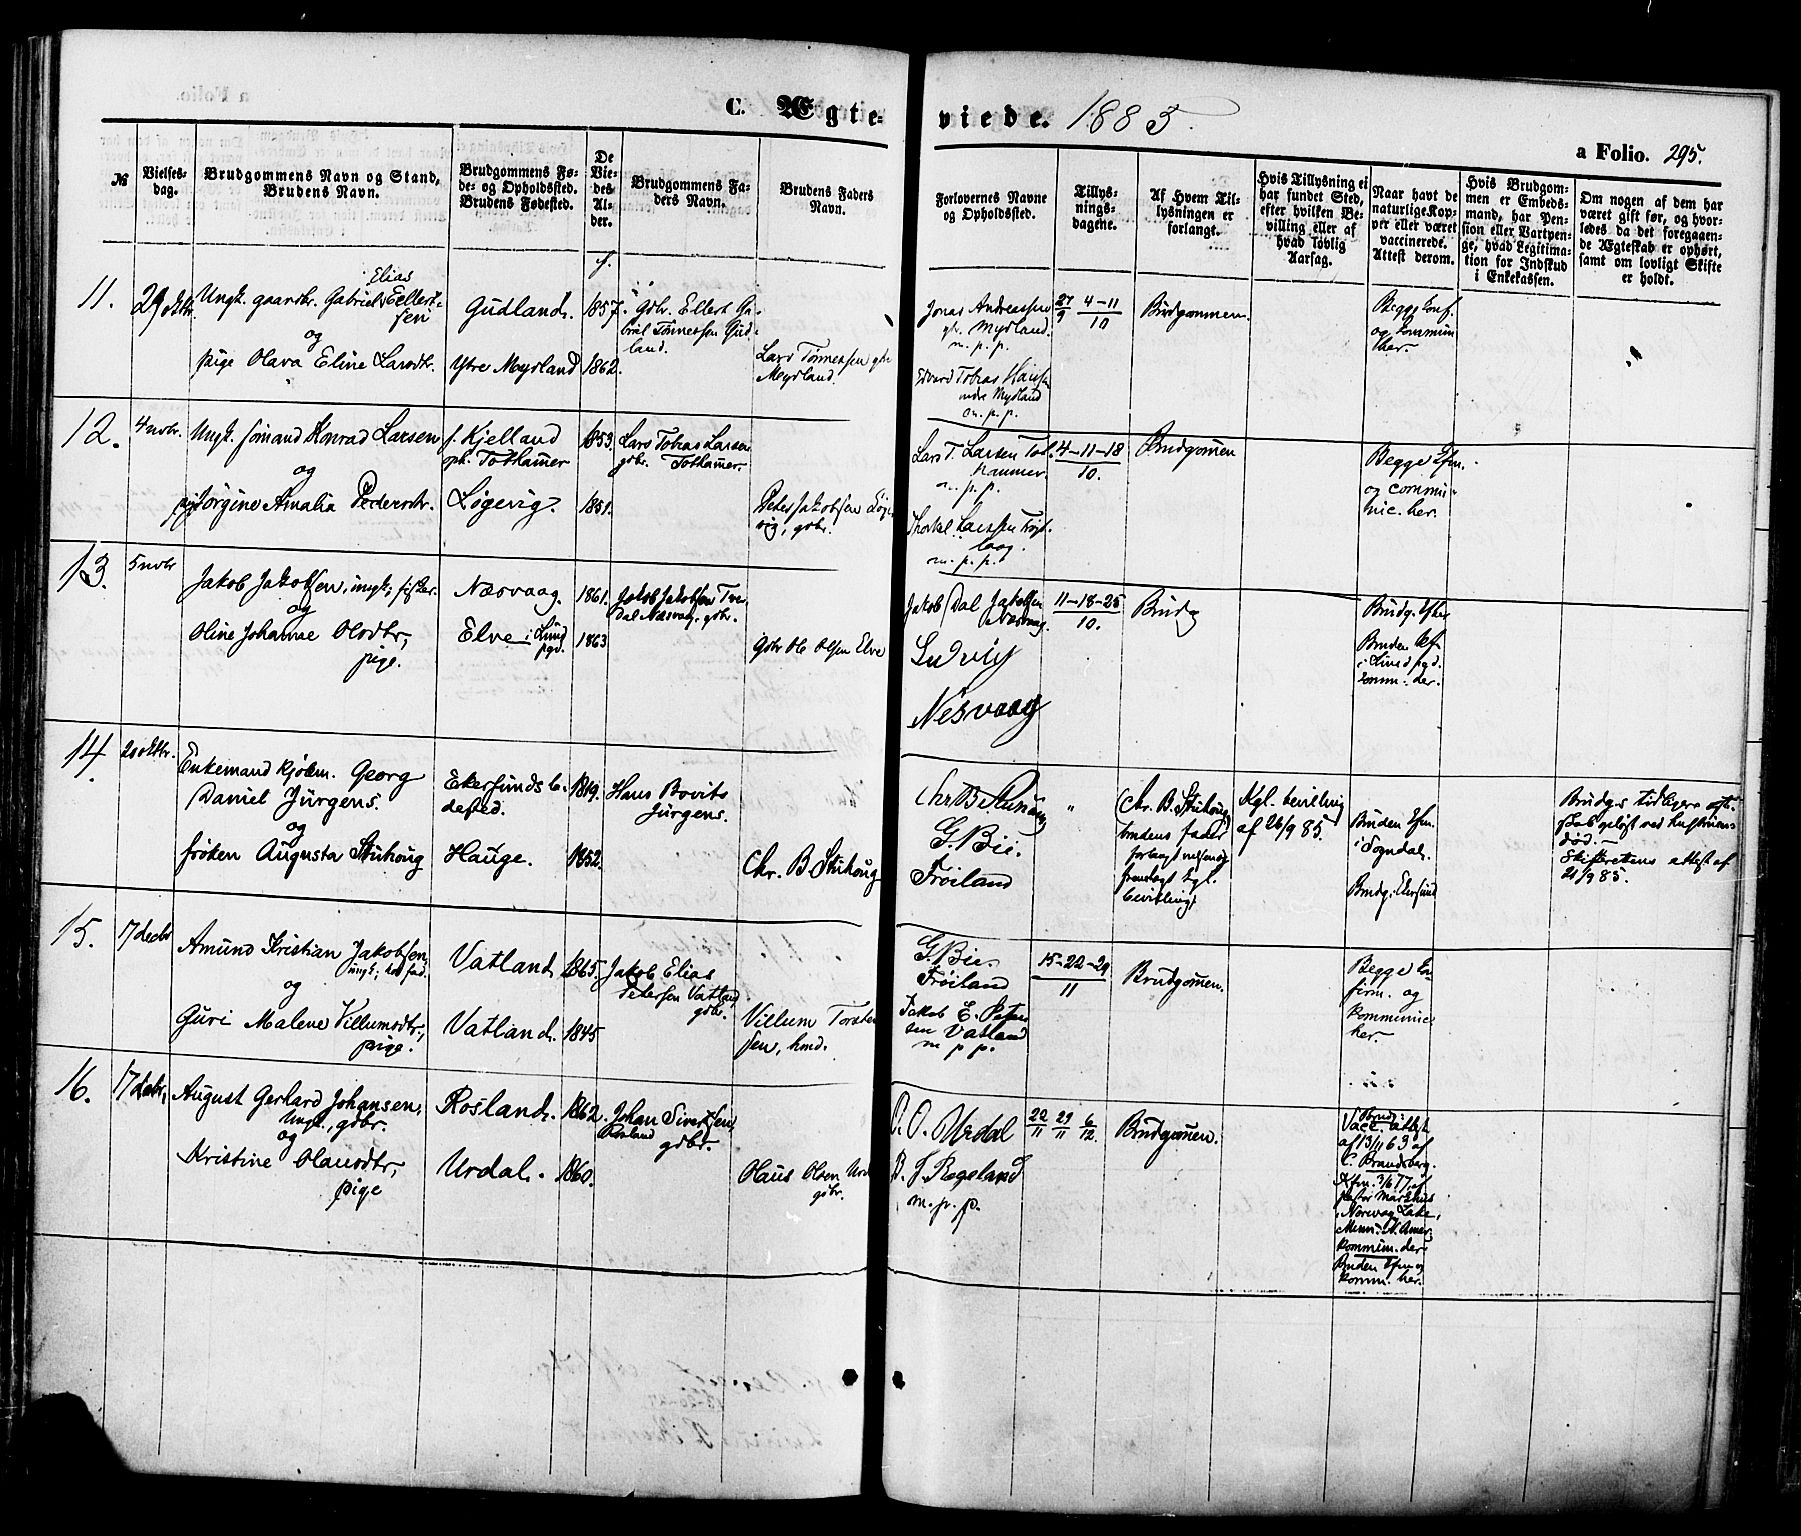 C. Ægte- viede. 1885.
a Folio. 295.
№
Vielses-
dag.
Brudgommens Navn og Stand,
Brudens Navn.
Brudgommens Fø-
de- og Opholdssted.
Brudens Fødested.
De
Vie-
des
Al-
der.
Brudgommens Fa-
ders Navn.
Brudens Faders
Navn.
Forlovernes Navne
og Opholdssted.
Tillys-
nings-
dagene.
Af Hvem Til-
lysningen er
forlangt.
Hvis Tillysning ei
har fundet Sted,
efter hvilken Be-
villing eller af
hvad lovlig
Aarsag.
Naar havt de
naturlige Kop-
per eller været
vaccinerede.
Attest derom.
Hvis Brudgom-
men er Embeds-
mand, har Pen-
sion eller Vartpen-
ge, hvad Legitima-
tion for Indskud
i Enkekassen.
Om nogen af dem har
været gift før, og hvor-
ledes da det foregaaen-
de Ægteskab er ophørt,
samt om lovligt Skifte
er holdt.
11.
29 oktbr.
Ungk. gaardbr. Gabriel Elias Ellert-
sen
og
pige Olava Eline Larsdtr.
Gudland.
Ytre Mydland
f.
1857.
1862.
Gbr. Ellert Ga-
briel Tønnessen Gud-
land.
Lars Tønnessen gbr
Mydland.
Jonas Andreassen
gbr. Mydland.
m. p. p.
Edvard Tobias Hansen
indre Mydland
m. p. p.
27/9 4-11/10
Brudgommen.
Begge Conf.
og kommun
her.
12.
4 novbr.
Ungk. sömand Konrad Larsen
og
pige Jørgine Amalia Pedersdtr.
f. Kjelland
oph. Tothamer
Løgevig.
1853.
1851.
Lars Tobias Larsen
gbr. Tothamer.
Peter Jakobsen Løge-
vig, gbr.
Lars T. Larsen Tot-
hammer.
m. p. p.
Thorkel Larssen
m. p. p.
4-11-18/10.
Brudgomen
Begge Cfm.
og commu-
nic. her.
13.
5 novbr
Jakob Jakobsen, ungk; fisker.
og
Oline Johanne Olsdtr,
pige.
Næsvaag.
Elve i Lund
pgd.
1861.
1863
Jakob Jakobsen
Dal Næsvaag. gbr.
Gbr Ole Olsen Elve
Jakob Dal Jakobsen
Næsvaag.
Ludvig
Nesvaag
11-18-25/10.
Brudg
Brudg. Cf her
Bruden Cf
i Lund pgd.
komm. der.
14.
20 oktbr.
Enkemand kjøbm. Georg
Daniel Jürgens.
og
frøken Augusta Stuhoug
Ekersunds la-
dested.
Hauge.
1819.
1852.
Hans Bovits
Jürgens.
Chr. B Stuhoug
Chr B Stuhoug
G. Bie.
Frøiland
"
Chr. B. Stuhoug
brudens fader
forlangt
fremlagt kgl.
bevilling.
Kgl. bevilling
af 26/9 85.
Bruden Cfm.
i Sogndal.
Brudg. i Ekersund
Brudg.s tidligere ægte-
skab opløst ved hustruens
død. —
Skifterettens attest af
21/9 85.
15.
17 decbr
Amund Kristian Jakobsen,
ungk; hos fad.
og
Guri Malene Villumsdtr,
pige.
Vatland
Vatland.
1865.
1845
Jakob Elias
Petersen Vatland
gbr.
Villum Torsten-
sen, hmd.
G. Bie.
Frøiland
Jakob E. Peter-
sen Vatland
m p p.
15-22-29/11
Brudgomen.
Begge Con-
firm. og
kommunic
her.
16.
17 decbr.
August Gerhard Johansen,
Ungk., gdbr.
og
Kristine Olausdtr,
pige
Rosland.
Urdal.
1862.
1860.
Johan Sivertsen
Rosland
gdbr.
Olaus Olsen Urdal
gbr.
O. O. Urdal
O. T. Regeland
m. p. p.
22/11 29/11 6/12.
Brudgomen.
Brudg:
Vacc. attest
af 13/11 63 af
C. Brandsberg.
Kfm. 3/6 77 af
pastor Markhus
Norway Lake,
Minn. N. Amer.
kommun. der
Bruden Cfm og
komm. her.